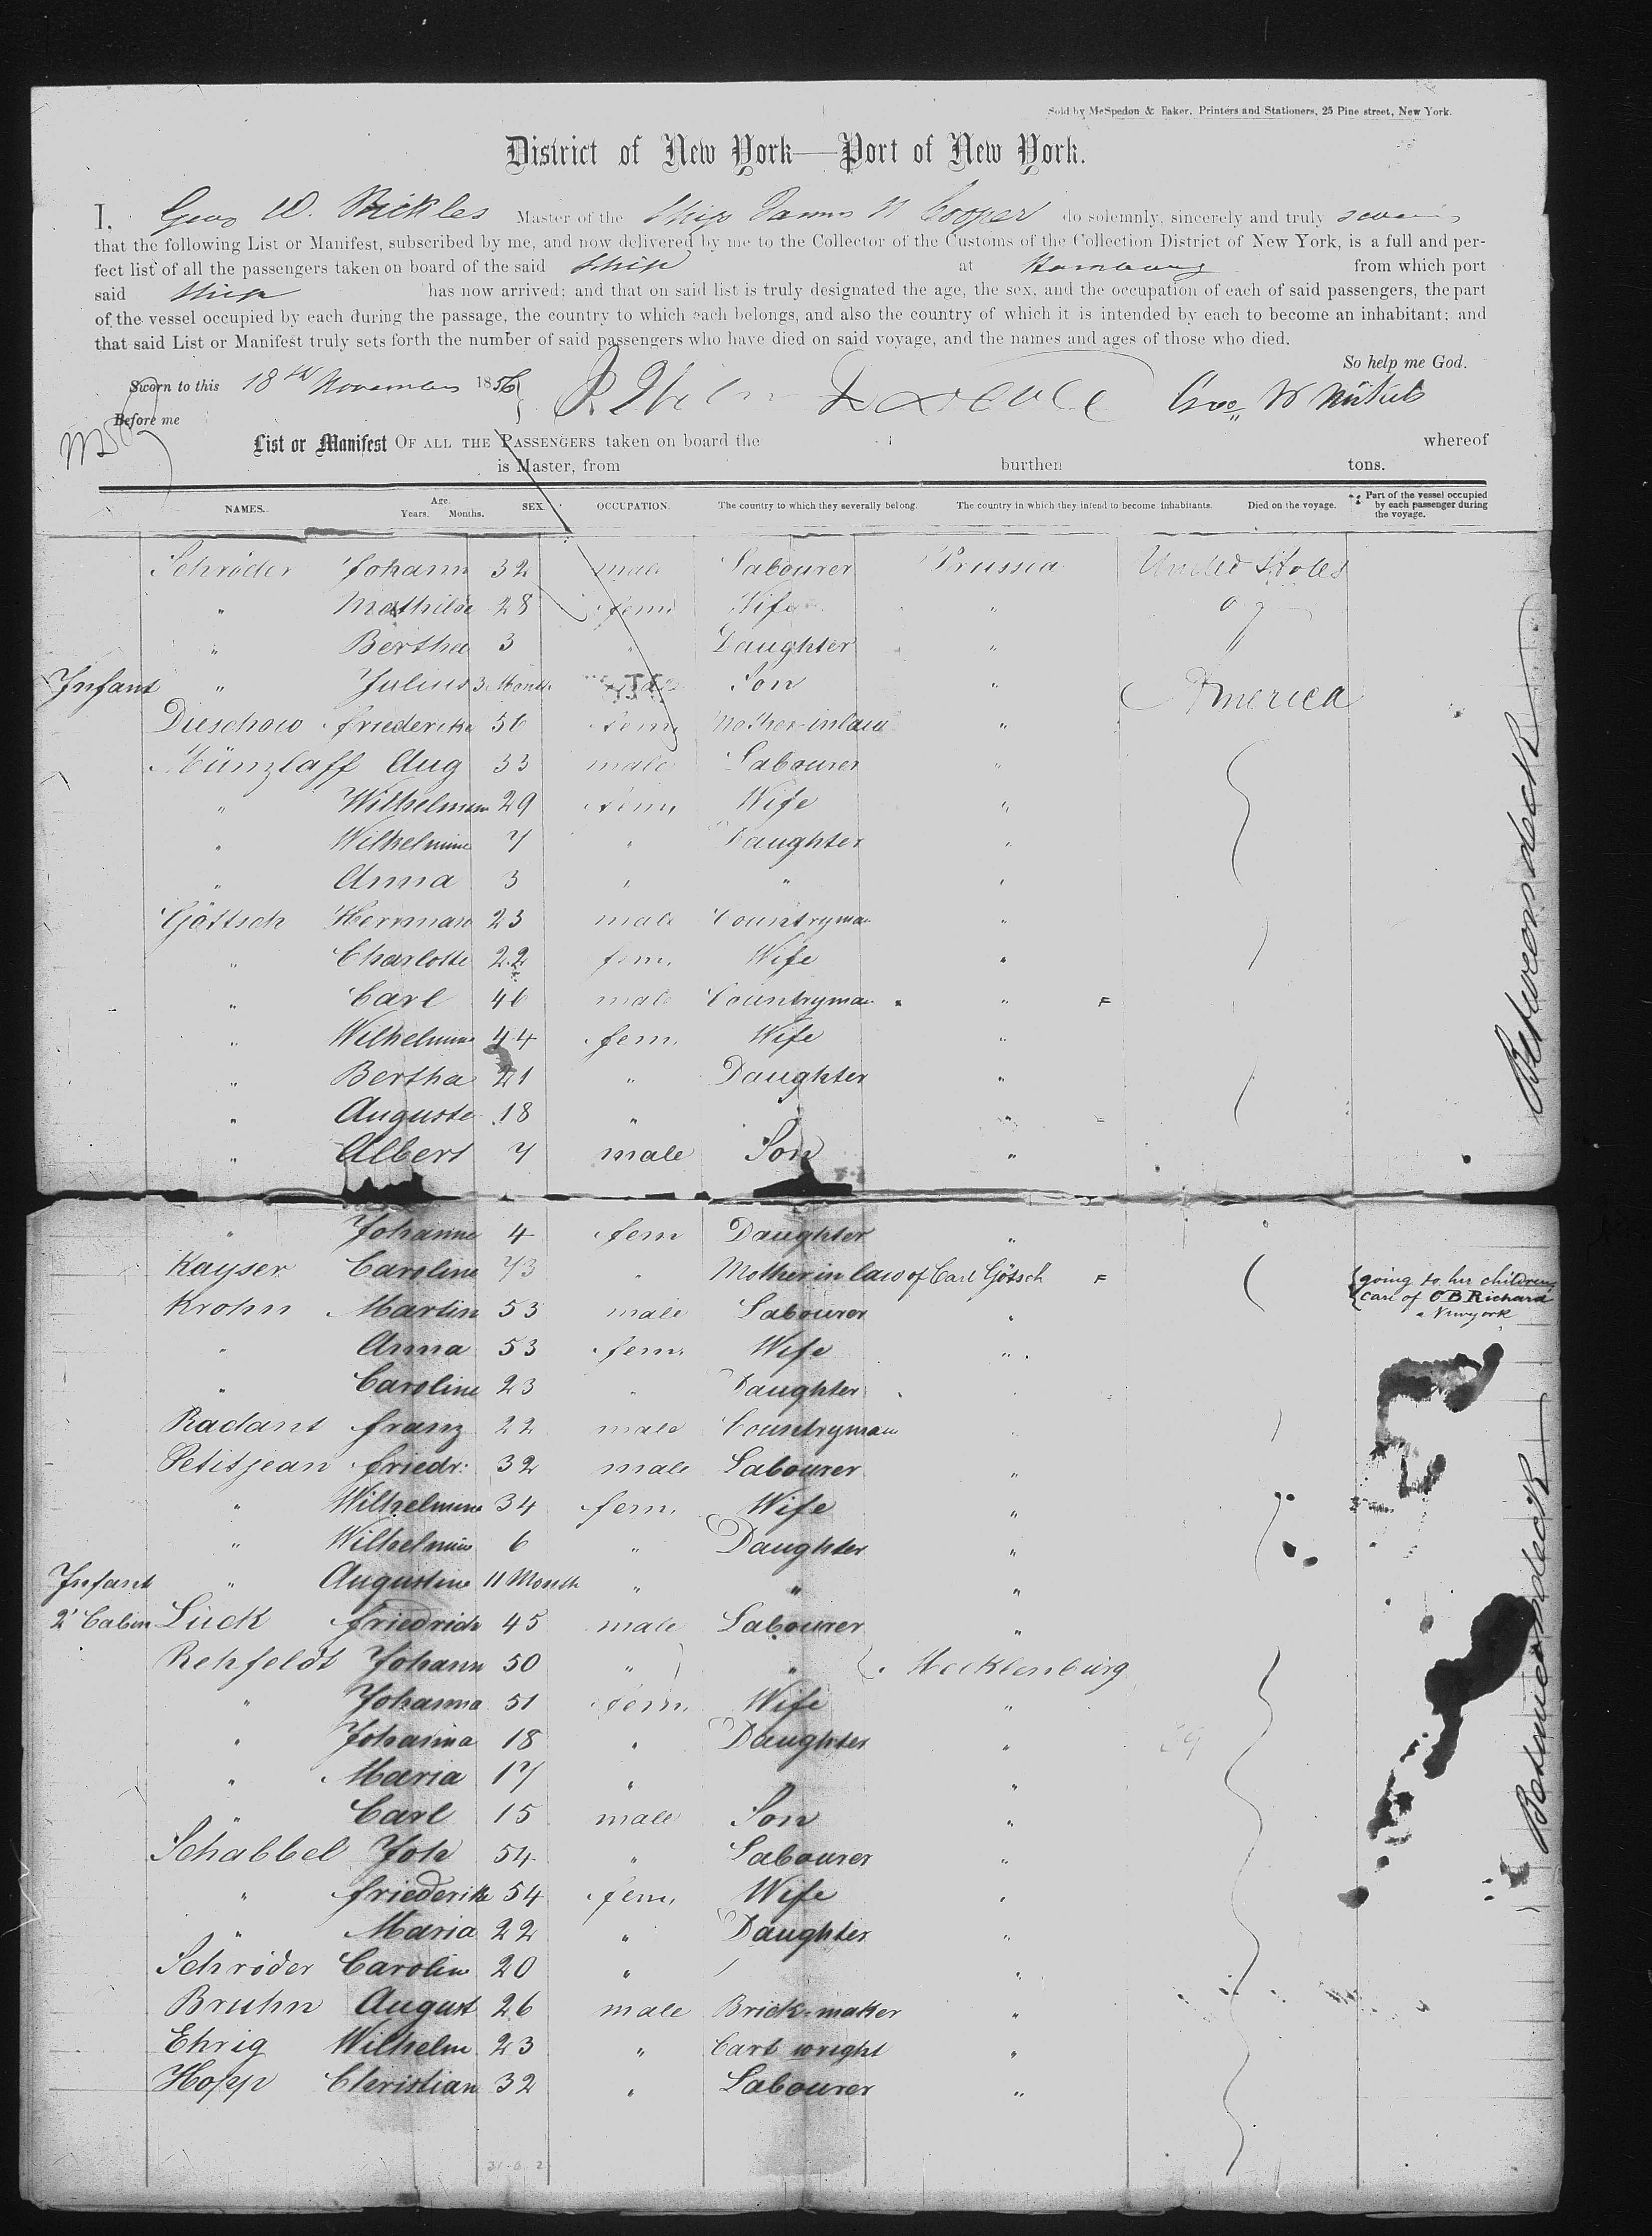 Sold by McSpedon & Baker, Printers and Stationers, 25 Pine street, New York.
District of New York—Port of New York.
I, Geo W. Master of the Ship James N Cooper do solemnly, sincerely and truly swear
that the following List or Manifest, subscribed by me, and now delivered by me to the Collector of the Customs of the Collection District of New York, is a full and per-
fect list of all the passengers taken on board of the said Ship at Hamburg from which port
said Ship has now arrived: and that on said list is truly designated the age, the sex, and the occupation of each of said passengers, the part
of the vessel occupied by each during the passage, the country to which each belongs, and also the country of which it is intended by each to become an inhabitant; and
that said List or Manifest truly sets forth the number of said passengers who have died on said voyage, and the names and ages of those who died.
So help me God.
Sworn to this 18th November 1856 Geo W
Before me
List or Manifest OF ALL THE PASSENGERS taken on board the whereof
is Master, from burthen tons.
NAMES. Age. Years. Months. SEX. OCCUPATION. The country to which they severally belong. The country in which they intend to become inhabitants. Died on the voyage. Part of the vessel occupied by each passenger during the voyage.
Schröder Johann 32 male Labourer Prussia United States
" Mathilde 28 fem Wife "
" Bertha 3 " Daughter "
Infant " Julius 3 Month Son " America
Dieschow Friederike 56 fem Mother inlaw "
Münzlaff Aug 33 male Labourer "
" Wilhelmine 29 fem Wife "
" Wilhelmine 7 " Daughter "
" Anna 3 " " "
Göttsch Herrman 23 male Countryman "
" Charlotte 22 fem. Wife "
" Carl 46 male Countryman "
" Wilhelmine 44 fem. Wife "
" Bertha 21 " Daughter "
" Auguste 18 " "
" Albert 7 male Son "
Between deck
" Johanne 4 fem Daughter "
Kayser Caroline 73 " Mother in law of Carl Götsch {going to her children care of O B Richard Newyork
Krohn Martin 53 male Labourer "
" Anna 53 fem. Wife "
" Caroline 23 " Daughter
Radant Franz 22 male Countryman
Petitjean Friedr: 32 male Labourer "
" Wilhelmine 34 fem. Wife "
" Wilhelmine 6 " Daughter "
Infant " Augustine 11 Month " " "
2' Cabin Lück Friedrich 45 male Labourer "
Rehfeldt Johann 50 " " Mecklenburg
" Johanna 51 fem. Wife "
" Johanna 18 " Daughter "
" Maria 17 " "
" Carl 15 male Son "
Schabbel Joh 54 " Labourer "
" Friederike 54 fem. Wife "
" Maria 22 " Daughter "
Schröder Carolin 20 " "
Bruhn August 26 male Brick-maker "
Ehrig Wilhelm 23 " Cart wright "
Hopp Christian 32 " Labourer "
Between deck